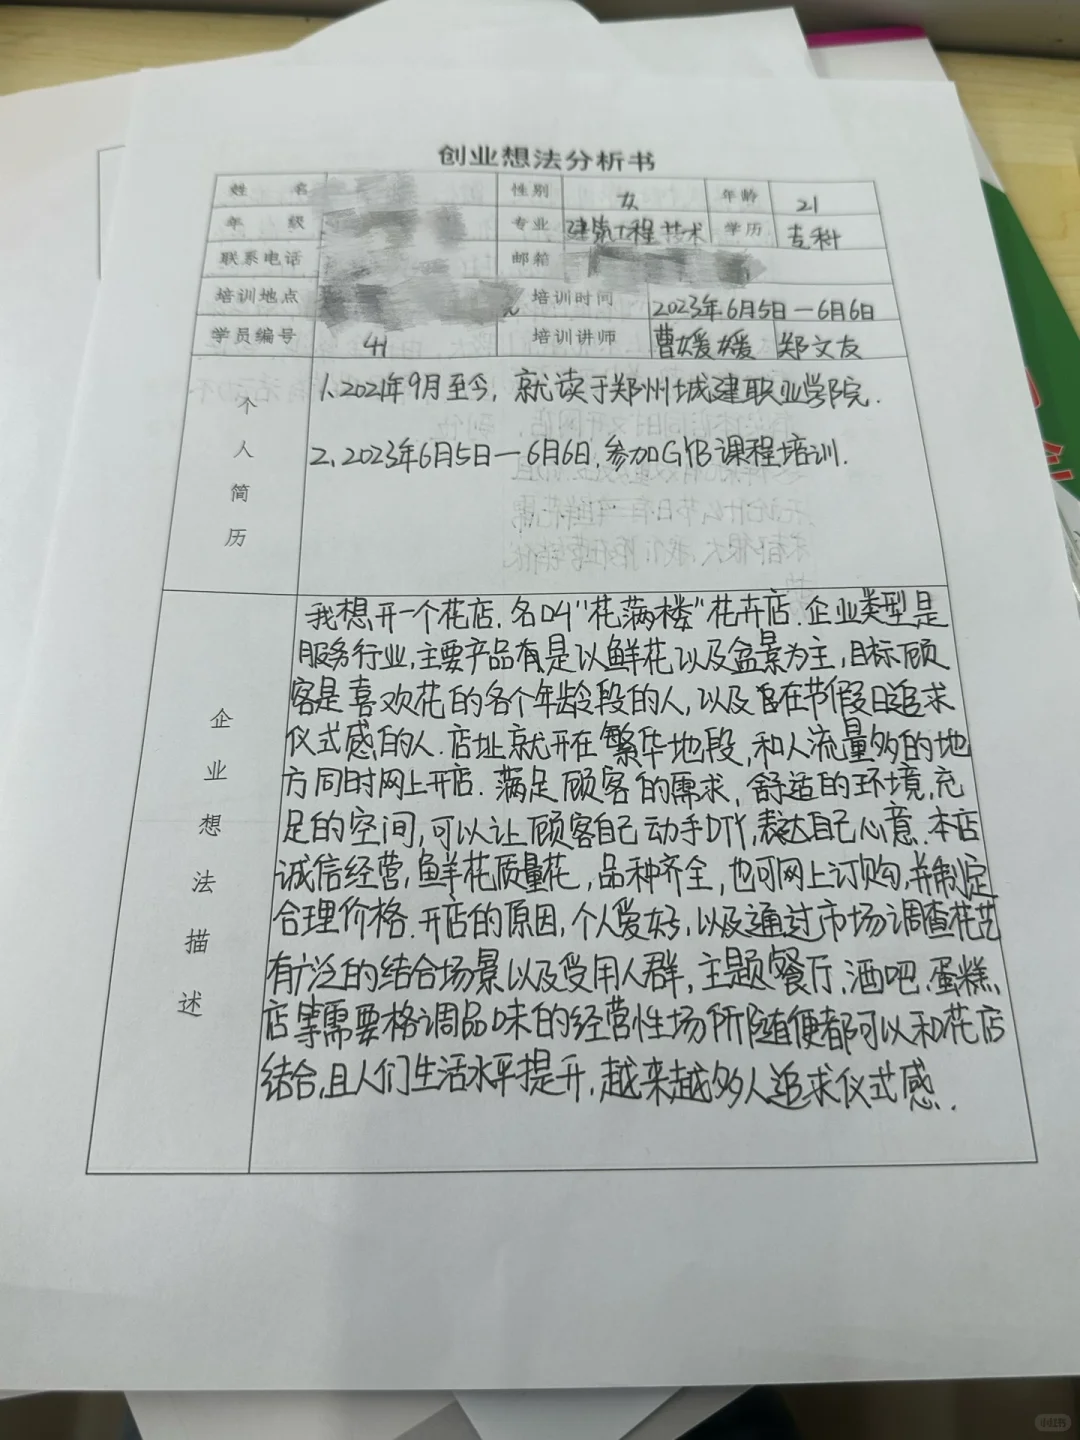 创业想法分析书
姓 名 性别 女 年龄 21
年 级 专业 建筑工程技术 学历 专科
联系电话 邮箱
培训地点 培训时间 2023年6月5日—6月6日
学员编号 41 培训讲师 曹媛媛 郑文友
个人简历
1、2021年9月至今，就读于郑州城建职业学院．
2、2023年6月5日—6月6日，参加GYB课程培训．
企业想法描述
我想开一个花店，名叫“花满楼”花卉店．企业类型是
服务行业，主要产品有是以鲜花以及盆景为主，目标顾
客是喜欢花的各个年龄段的人，以及在节假日追求
仪式感的人．店址就开在繁华地段，和人流量多的地
方同时网上开店．满足顾客的需求，舒适的环境，充
足的空间，可以让顾客自己动手DIY，表达自己心意．本店
诚信经营，鲜花质量花，品种齐全，也可网上订购，并制定
合理价格．开店的原因，个人爱好，以及通过市场调查花艺
有广泛的结合场景以及受用人群，主题餐厅、酒吧、蛋糕、
店等需要格调品味的经营性场所随便都可以和花店
结合，且人们生活水平提升，越来越多人追求仪式感．
小红书